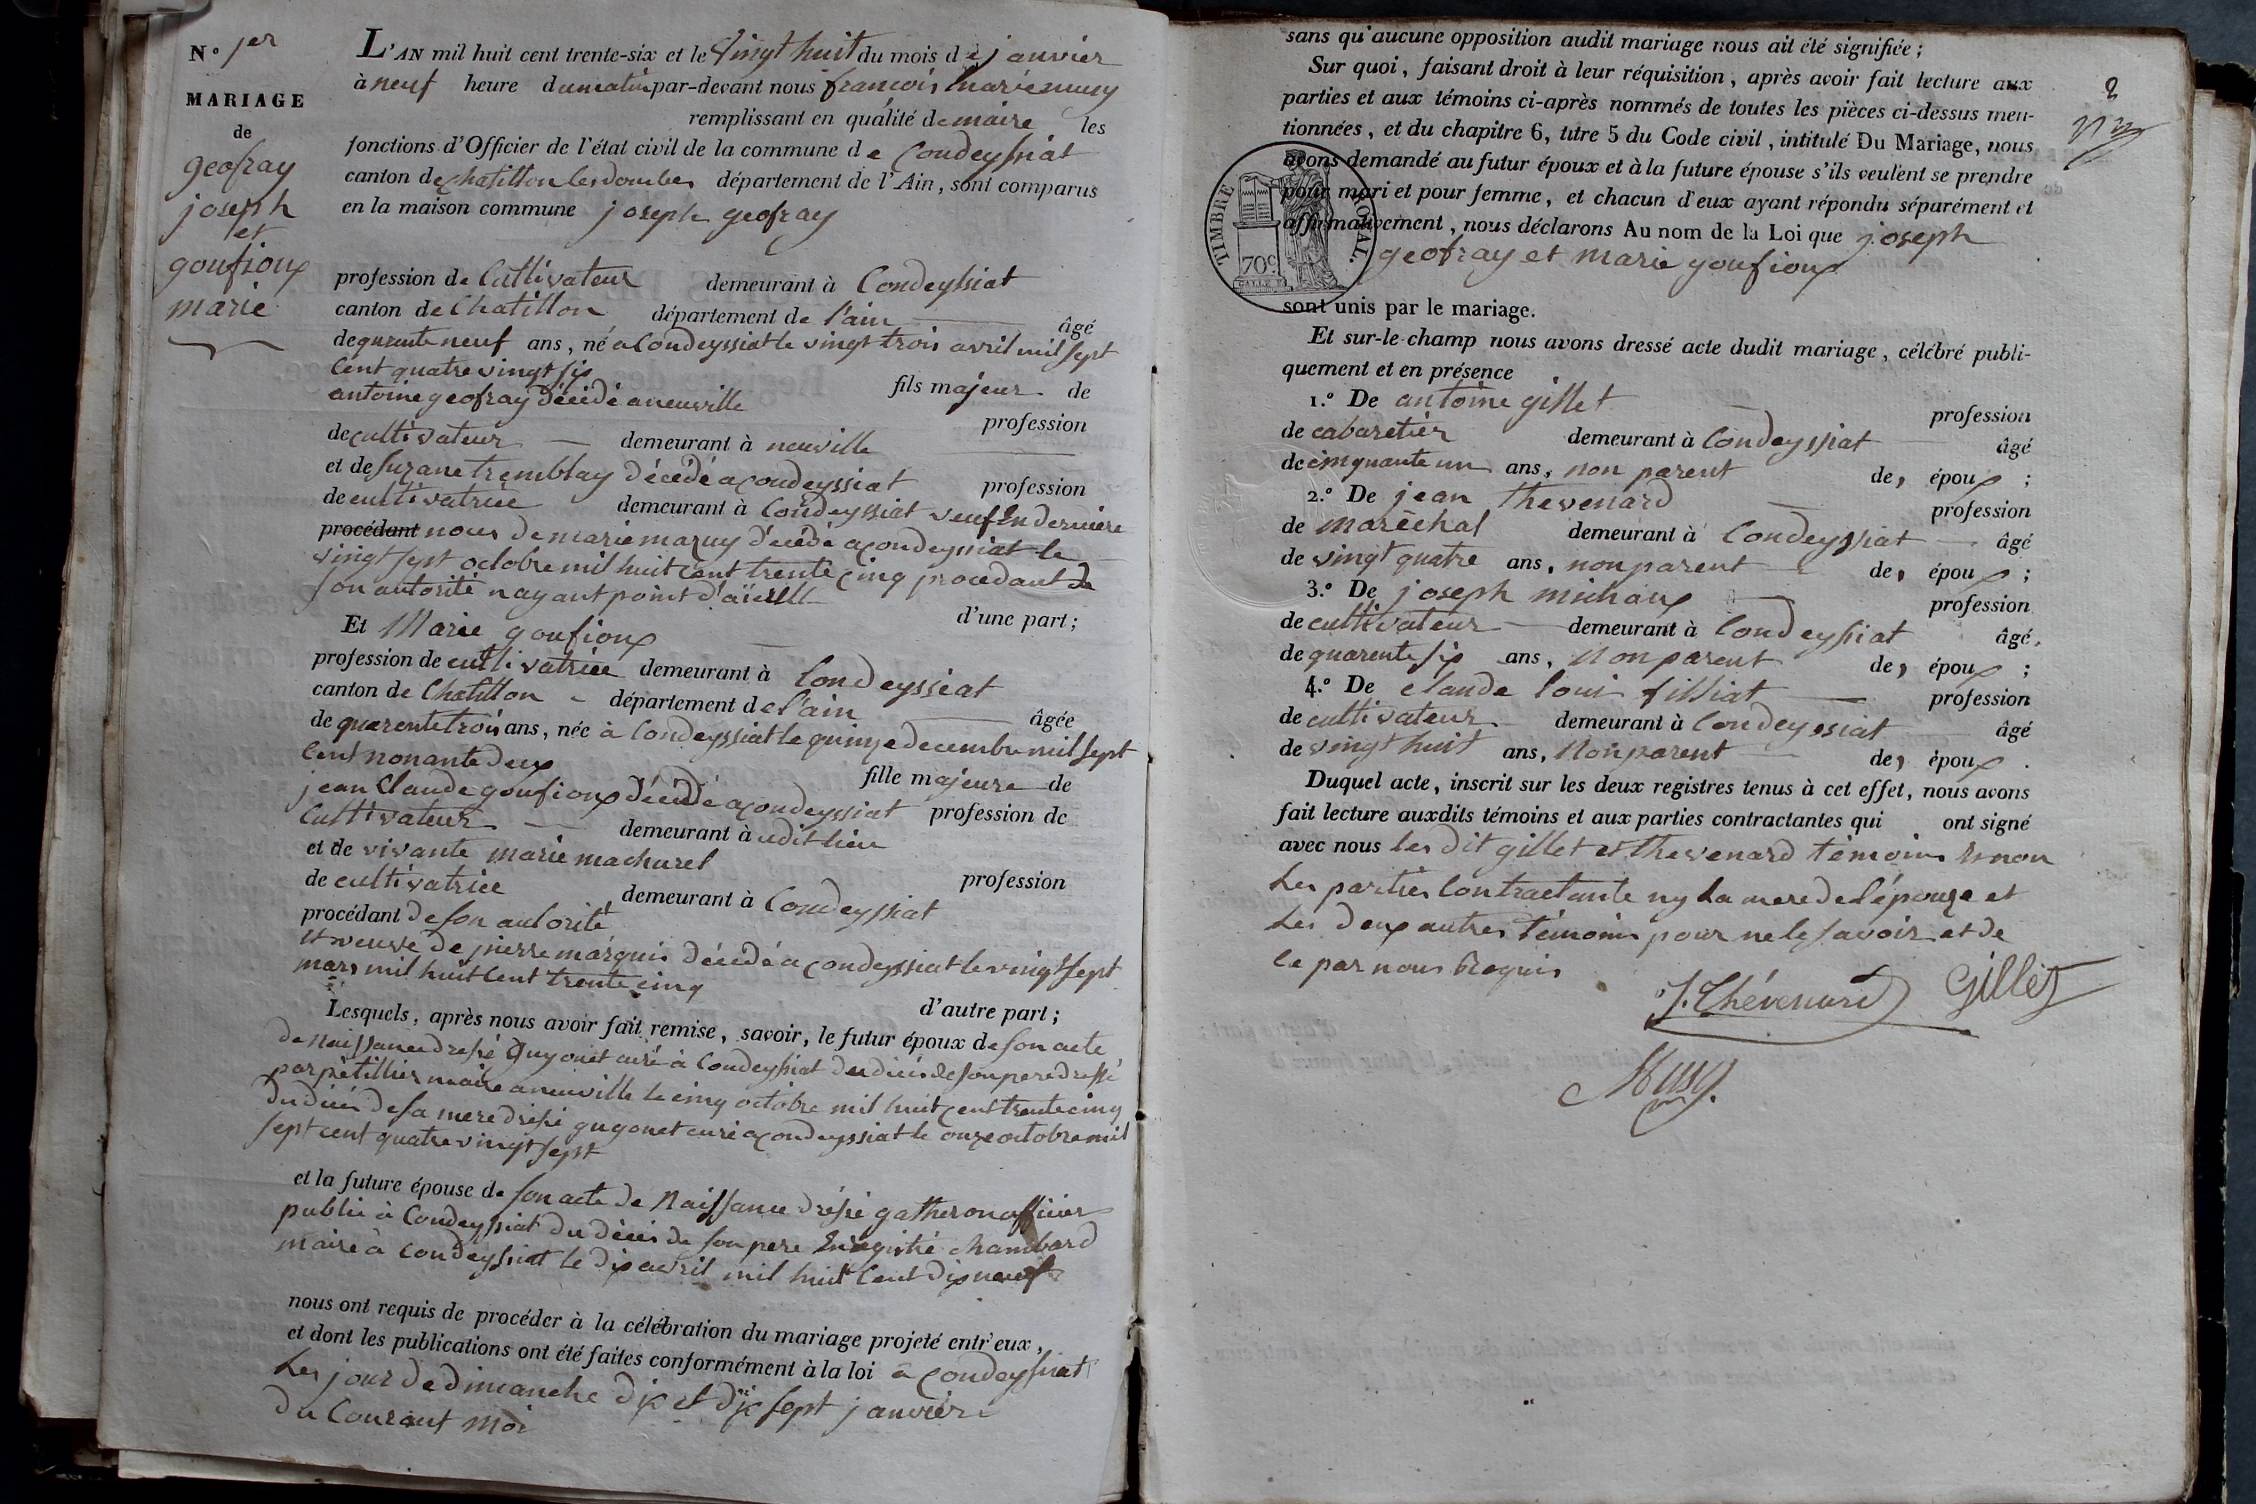 N.º 1er
MARIAGE
de
geofray
joseph
et
goufioux
marie
L'AN mil huit cent trente-six et le Vingt huit du mois de janvier
à neuf heure du matin par-devant nous françois marie musy
remplissant en qualité de maire les
fonctions d'Officier de l'état civil de la commune de Condeyssiat
canton de chatillon les dombes département de l'Ain, sont comparus
en la maison commune joseph geofray
profession de Cultivateur demeurant à Condeyssiat
canton de Chatillon département de l'ain âgé
de quarente neuf ans, né a Condeyssiat le vingt trois avril mil sept
Cent quatre vingt six fils majeur de
antoine geofray décédé a neuville profession
de cultivateur demeurant à neuville
et de suzane tremblay décédé a condeyssiat profession
de cultivatrice demeurant à Condeyssiat veuf En derniere
procédant nous de marie mazuy décédé a condeyssiat le
vingt sept octobre mil huit cent trente cinq procedant de
son autorité n ayant point d'aïeul
d'une part;
Et Marie goufioux
profession de cultivatrice demeurant à Condeyssiat
canton de Chatillon département de l'ain âgée
de quarente trois ans, née à Condeyssiat le quinze decembre mil sept
Cent nonante deux fille majeure de
jean Claude goufioux décédé a condeyssiat profession de
Cultivateur demeurant à udit lieu
et de vivante marie machurel profession
de cultivatrice demeurant à Condeyssiat
procédant de son autorité
et veuve de pierre marquis décédé a condeyssiat le vingt sept
mars mil huit cent trente cinq
d'autre part;
Lesquels, après nous avoir fait remise, savoir, le futur époux de son acte
de naissance dressé guyonet curé à Condeyssiat du décés de son pere dressé
par petillier maire a neuville le cinq octobre mil huit cent trente cinq
du décés de sa mere dressé guyonet curé a condeyssiat le onze octobre mil
sept cent quatre vingt sept
et la future épouse de son acte de Naissance dréssé gatheron officier
public à Condeyssiat du décés de son pere Enregistré chambard
maire à Condeyssiat le dix avril mil huit Cent dix neuf
nous ont requis de procéder à la célébration du mariage projeté entr'eux,
et dont les publications ont été faites conformément à la loi à Condeyssiat
Les jour de dimanche dix et dix sept janvier
du Courant moi
sans qu'aucune opposition audit mariage nous ait été signifiée;
Sur quoi, faisant droit à leur réquisition, après avoir fait lecture aux
parties et aux témoins ci-après nommés de toutes les pièces ci-dessus men-
tionnées, et du chapitre 6, titre 5 du Code civil, intitulé Du Mariage, nous
avons demandé au futur époux et à la future épouse s'ils veulent se prendre
pour mari et pour femme, et chacun d'eux ayant répondu séparément et
affirmativement, nous déclarons Au nom de la Loi que joseph
geofray et marie goufioux
sont unis par le mariage.
Et sur-le-champ nous avons dressé acte dudit mariage, célébré publi-
quement et en présence
1.º De antoine gillet profession
de cabaretier demeurant à Condeyssiat âgé
de cinquante un ans, non parent des époux;
2.º De jean thevenard profession
de maréchal demeurant à Condeyssiat âgé
de vingt quatre ans, non parent des époux;
3.º De joseph michaux profession
de cultivateur demeurant à Condeyssiat âgé
de quarente six ans, Non parent des époux;
4.º De claude loui filliat profession
de cultivateur demeurant à Condeyssiat âgé
de vingt huit ans, Non parent des époux.
Duquel acte, inscrit sur les deux registres tenus à cet effet, nous avons
fait lecture auxdits témoins et aux parties contractantes qui ont signé
avec nous les dit gillet et thevenard témoins Et non
Les parties Contractante ny La mere de l'épouze et
Les deux autres témoins pour ne le savoir et de
ce par nous Requis
J. Thévenard Gillet
Musy
2
TIMBRE ROYAL.
70c